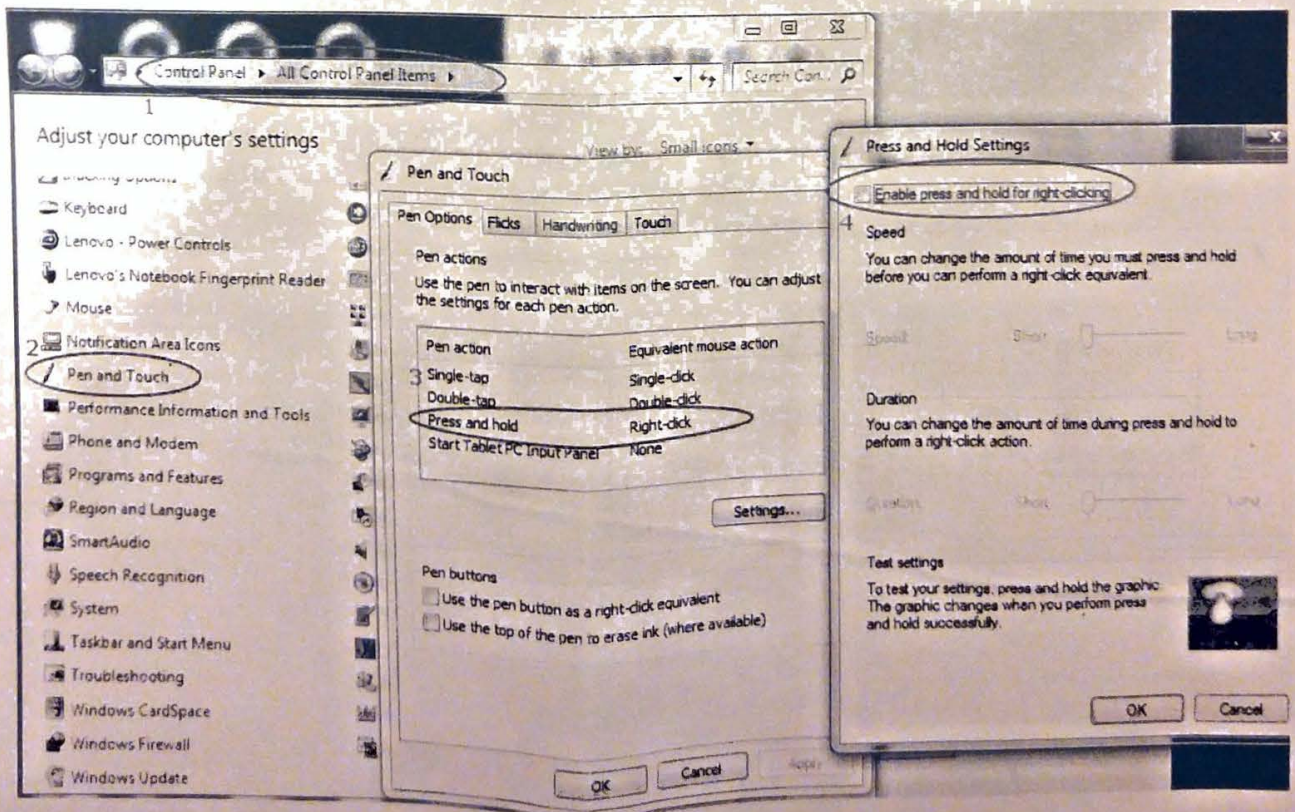 Control Panel ▸ All Control Panel Items ▸
Search Con...
1
Adjust your computer's settings
View by: Small icons
Keyboard
Lenovo - Power Controls
Lenovo's Notebook Fingerprint Reader
Mouse
2 Notification Area Icons
Pen and Touch
Performance Information and Tools
Phone and Modem
Programs and Features
Region and Language
SmartAudio
Speech Recognition
System
Taskbar and Start Menu
Troubleshooting
Windows CardSpace
Windows Firewall
Windows Update
Pen and Touch
Pen Options Flicks Handwriting Touch
Pen actions
Use the pen to interact with items on the screen. You can adjust
the settings for each pen action.
Pen action Equivalent mouse action
3 Single-tap Single-click
Double-tap Double-click
Press and hold Right-click
Start Tablet PC Input Panel None
Settings...
Pen buttons
Use the pen button as a right-click equivalent
Use the top of the pen to erase ink (where available)
OK Cancel Apply
Press and Hold Settings
Enable press and hold for right-clicking
4
Speed
You can change the amount of time you must press and hold
before you can perform a right-click equivalent.
Speed: Short Long
Duration
You can change the amount of time during press and hold to
perform a right-click action.
Duration: Short Long
Test settings
To test your settings, press and hold the graphic.
The graphic changes when you perform press
and hold successfully.
OK Cancel